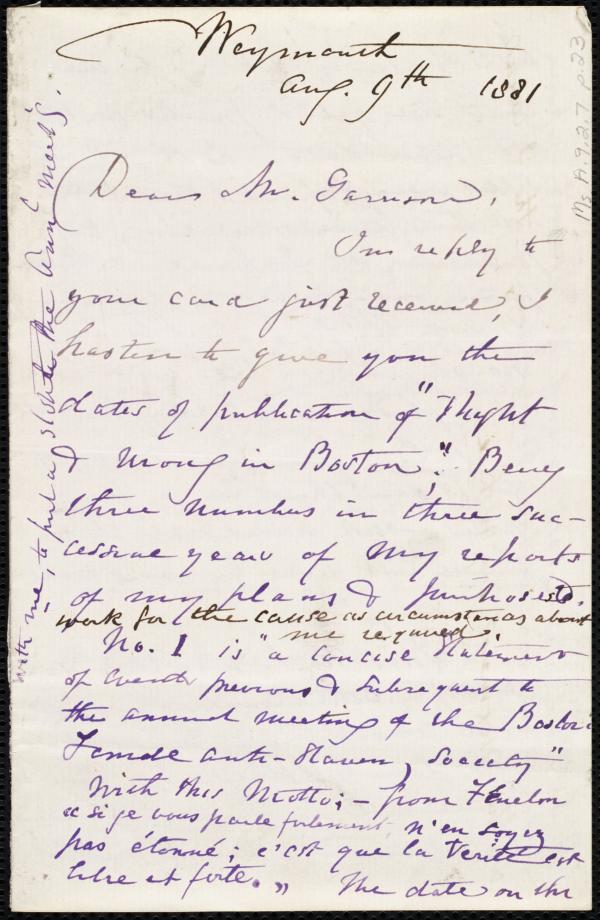 Weymouth
Aug. 9th 1881
Dear Mr. Garrison,
In reply to
your card just received, I
hasten to give you the
dates of publication of "Right
& Wrong in Boston"; Being
three numbers in three suc-
cessive years of my reports
of my plans & purposes to
work for the cause as circumstances about
me required.
No. 1 is "a concise statement
of events previous & subsequent to
the annual meeting of the Boston
Female anti-slavery society"
With this Motto; – from Fenelon
"si je vous parle fortement, n'en soyez
pas étonné; c'est que la Verité est
libre et forte." The date on the
with me, to put a slight the Ann. Meet'g.
Ms. A.9.2.7 p.23